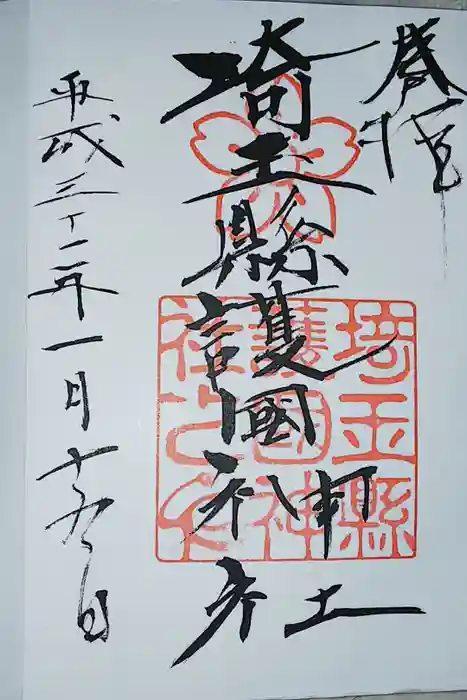 奉拝
埼玉縣護國神社
平成三十一年一月十九日
埼玉縣
護國神
社之印